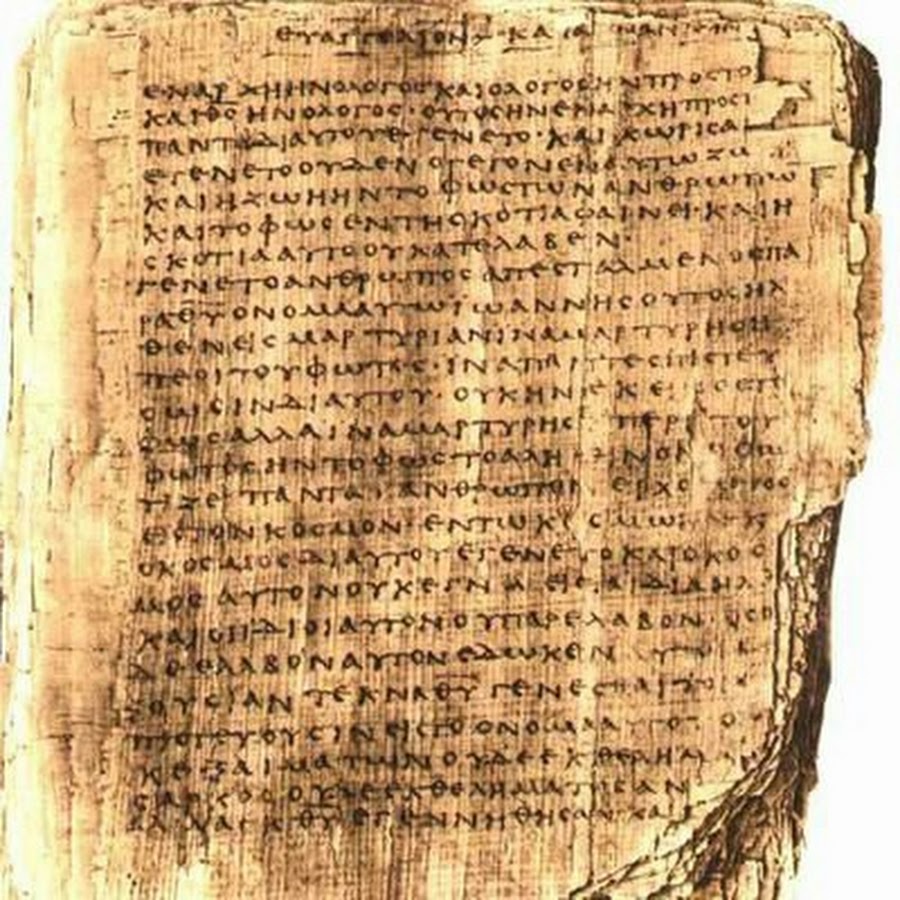 ΕΥΑΓΓΕΛΙΟΝ ΚΑ
ΕΝΑΡΧΗΗΝΟΛΟΓΟϹΚΑΙΟΛΟΓΟϹΗΝΠΡΟϹΤΟ
ΚΑΙΘϹΗΝΟΛΟΓΟϹ·ΟΥΤΟϹΗΝΕΝΑΡΧΗΠΡΟϹΤ
ΠΑΝΤΑΔΙΑΥΤΟΥΕΓΕΝΕΤΟ·ΚΑΙΧΩΡΙϹΑ
ΕΓΕΝΕΤΟΟΥΔΕΝΟΓΕΓΟΝΕΝΕΝΑΥΤΩΖΩ
ΚΑΙΗΖΩΗΗΝΤΟΦΩϹΤΩΝΑΝΘΡΩΠΩ
ΚΑΙΤΟΦΩϹΕΝΤΗϹΚΟΤΙΑΦΑΙΝΕΙ·ΚΑΙΗ
ϹΚΟΤΙΑΑΥΤΟΟΥΚΑΤΕΛΑΒΕΝ·
ΓΕΝΕΤΟΑΝΘΡΩΠΟϹΑΠΕϹΤΑΛΜΕΝΟϹΠΑ
ΡΑΘΥΟΝΟΜΑΑΥΤΩΙΩΑΝΝΗϹΟΥΤΟϹΗΛ
ΘΕΝΕΙϹΜΑΡΤΥΡΙΑΝΙΝΑΜΑΡΤΥΡΗϹΗ
ΠΕΡΙΤΟΥΦΩΤΟϹ·ΙΝΑΠΑΝΤΕϹΠΙϹΤΕΥ
ϹΩϹΙΝΔΙΑΥΤΟΥ·ΟΥΚΗΝΕΚΕΙΝΟϹΤΟ
ΦΩϹΑΛΛΑΙΝΑΜΑΡΤΥΡΗϹΗΠΕΡΙΤΟΥ
ΦΩΤΟϹΗΝΤΟΦΩϹΤΟΑΛΗΘΙΝΟΝΟΦΩ
ΤΙΖΕΙΠΑΝΤΑΑΝΘΡΩΠΟΝΕΡΧΟΜΕΝΟ
ΕΙϹΤΟΝΚΟϹΜΟΝ·ΕΝΤΩΚΟϹΜΩΗΝΚ
ΟΚΟϹΜΟϹΔΙΑΥΤΟΥΕΓΕΝΕΤΟΚΑΙΟΚΟϹ
ΜΟϹΑΥΤΟΝΟΥΚΕΓΝΩΕΙϹΤΑΙΔΙΑΗΛΘ
ΚΑΙΟΙΙΔΙΟΙΑΥΤΟΝΟΥΠΑΡΕΛΑΒΟΝ·ΟϹΟ
ΔΕΕΛΑΒΟΝΑΥΤΟΝΕΔΩΚΕΝ
ΞΟΥϹΙΑΝΤΕΚΝΑΘΥΓΕΝΕϹΘΑΙΤΟΙ
ΠΙϹΤΕΥΟΥϹΙΝΕΙϹΤΟΟΝΟΜΑΑΥΤΟΥΟ
ΚΕΞΑΙΜΑΤΩΝΟΥΔΕΕΚΘΕΛΗΜΑ
ϹΑΡΚΟϹΟΥΔΕΕΚΘΕΛΗΜΑΤΟϹΑΝ
ΑΛΛΑΕΚΘΥΕΓΕΝΝΗΘΗϹΑΝΚΑΙ